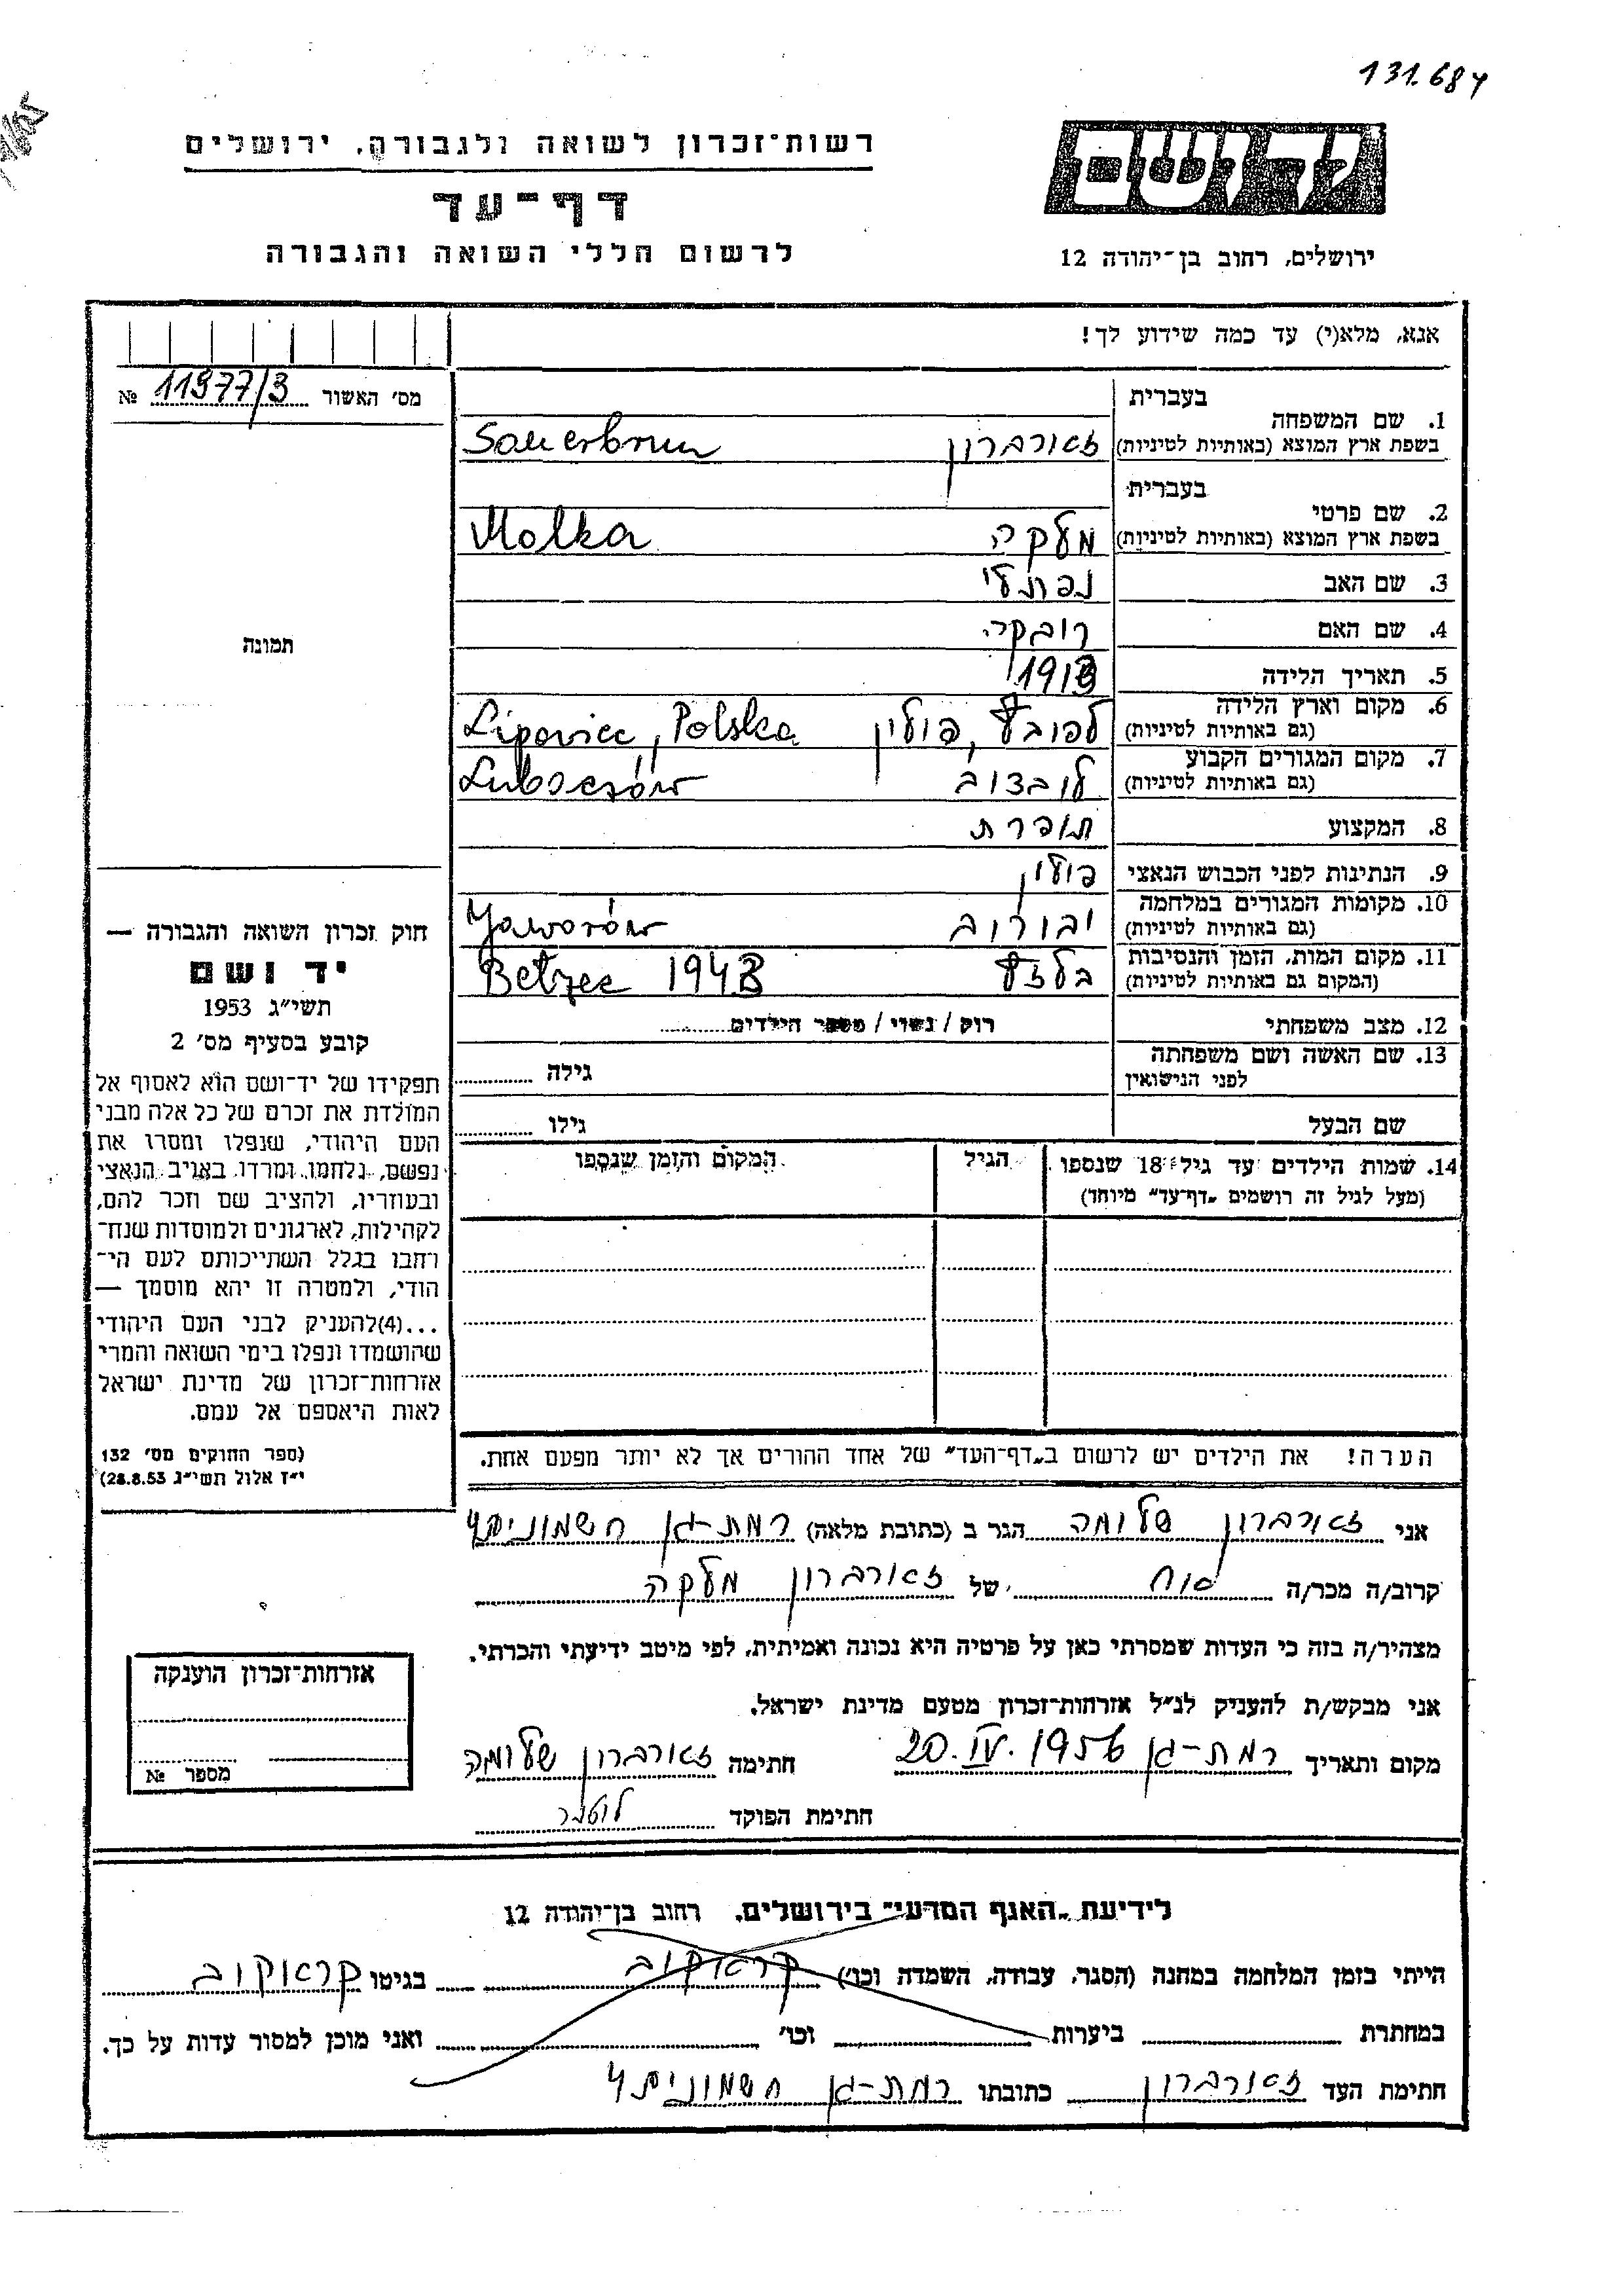 131.684
יד ושם
רשות־זכרון לשואה ולגבורה, ירושלים
דף־עד
לרשום חללי השואה והגבורה
ירושלים, רחוב בן־יהודה 12
אנא, מלא(י) עד כמה שידוע לך!
מס׳ האשור 11977/3 №
בעברית
1. שם המשפחה
בשפת ארץ המוצא (באותיות לטיניות) זאורברון Sauerbrun
בעברית
2. שם פרטי
בשפת ארץ המוצא (באותיות לטיניות) מלקה Molka
3. שם האב נפתלי
4. שם האם רובקה
5. תאריך הלידה 1913
6. מקום וארץ הלידה
(גם באותיות לטיניות) פולין Lipoviec, Polska
7. מקום המגורים הקבוע
(גם באותיות לטיניות) לובצוב Lubaczów
8. המקצוע תופרת
9. הנתינות לפני הכבוש הנאצי פולין
10. מקומות המגורים במלחמה
(גם באותיות לטיניות) יבורוב Jaworów
11. מקום המות, הזמן והנסיבות
(המקום גם באותיות לטיניות) בלזץ Betzec 1943
12. מצב משפחתי רוק / נשוי / מספר הילדים
13. שם האשה ושם משפחתה
לפני הנישואין גילה
שם הבעל גילו
14. שמות הילדים עד גיל 18 שנספו הגיל המקום והזמן שנספו
(מעל לגיל זה רושמים „דף־עד״ מיוחד)
הערה! את הילדים יש לרשום ב„דף־העד״ של אחד ההורים אך לא יותר מפעם אחת.
תמונה
חוק זכרון השואה והגבורה —
יד ושם
תשי״ג 1953
קובע בסעיף מס׳ 2
תפקידו של יד־ושם הוא לאסוף אל
המולדת את זכרם של כל אלה מבני
העם היהודי, שנפלו ומסרו את
נפשם, נלחמו ומרדו באויב הנאצי
ובעוזריו, ולהציב שם וזכר להם,
לקהילות, לארגונים ולמוסדות שנח־
רבו בגלל השתייכותם לעם הי־
הודי, ולמטרה זו יהא מוסמך —
...(4)להעניק לבני העם היהודי
שהושמדו ונפלו בימי השואה והמרי
אזרחות־זכרון של מדינת ישראל
לאות היאספם אל עמם.
(ספר החוקים מס׳ 132
י״ז אלול תשי״ג 28.8.53)
אני זאורברון שלומה הגר ב (כתובת מלאה) רמת-גן חשמונים 4
קרוב/ה מכר/ה אח של זאורברון מלקה
מצהיר/ה בזה כי העדות שמסרתי כאן על פרטיה היא נכונה ואמיתית, לפי מיטב ידיעתי והכרתי.
אני מבקש/ת להעניק לנ״ל אזרחות־זכרון מטעם מדינת ישראל.
מקום ותאריך רמת-גן 20.IV.1956 חתימה זאורברון שלומה
חתימת הפוקד
אזרחות־זכרון הוענקה
מספר №
לידיעת „האגף המדעי״ בירושלים, רחוב בן־יהודה 12
הייתי בזמן המלחמה במחנה (הסגר, עבודה, השמדה וכו׳) קראקוב בגיטו קראקוב
במחתרת ביערות וכו׳ ואני מוכן למסור עדות על כך.
חתימת העד זאורברון כתובתו רמת-גן חשמונים 4